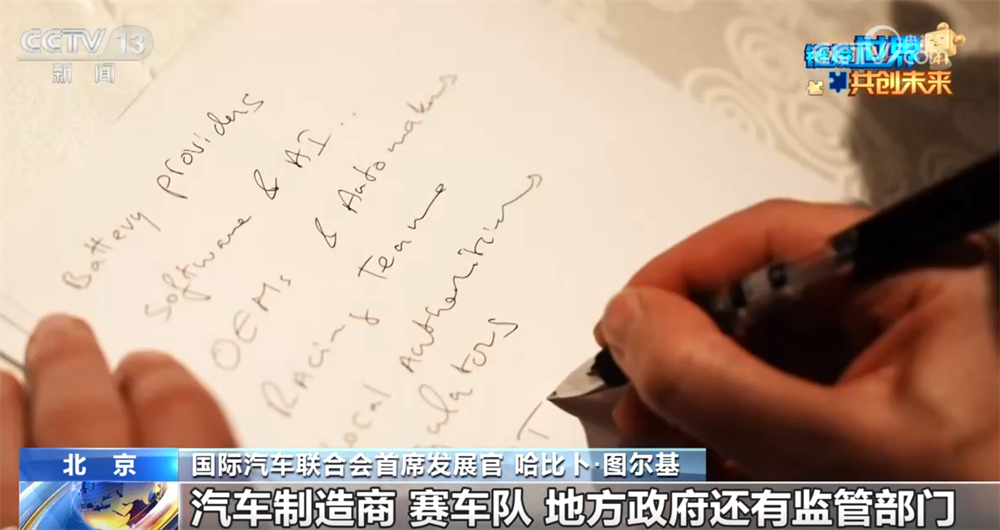 CCTV 13
新闻
链接世界
共创未来
Battery providers
Software & AI ..
OEMs & Automakers
Racing Teams
Local Authorities
gulators
T
北京
国际汽车联合会首席发展官 哈比卜·图尔基
汽车制造商 赛车队 地方政府还有监管部门